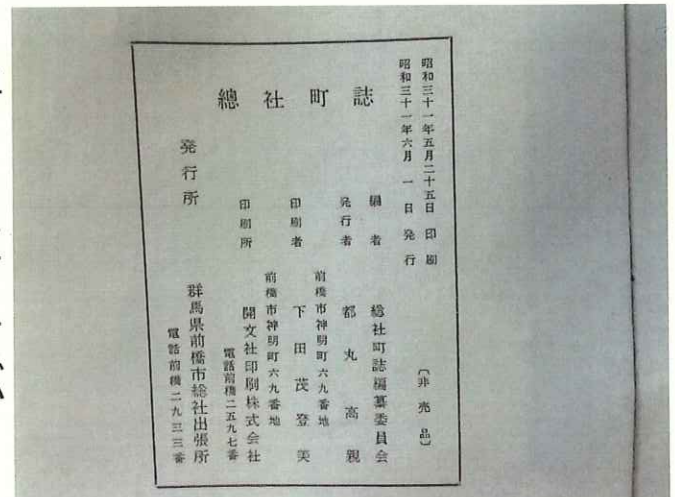 昭和三十一年五月二十五日 印刷
昭和三十一年六月 一 日 発行
〔非売品〕
總社町誌
編者 総社町誌編纂委員会
発行者 都丸高親
前橋市神明町六九番地
印刷者 下田茂登美
前橋市神明町六九番地
印刷所 開文社印刷株式会社
電話前橋二五九七番
発行所 群馬県前橋市総社出張所
電話前橋二九三三番